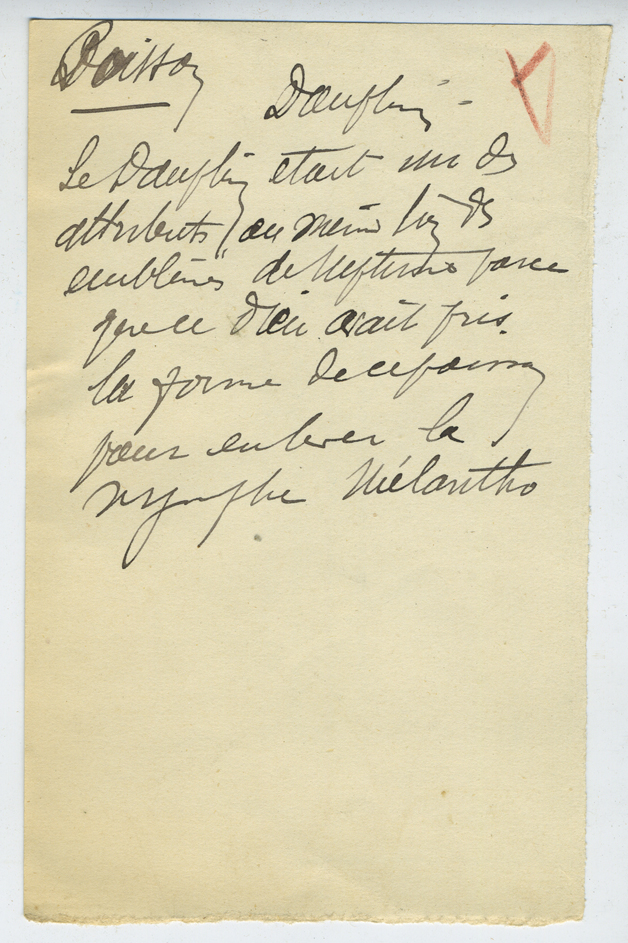 Poisson
Dauphin -
Le Dauphin était un des
attributs / ou même un des
emblèmes de Neptune parce
que ce Dieu avait pris
la forme de ce poisson
pour enlever la
nymphe Mélantho